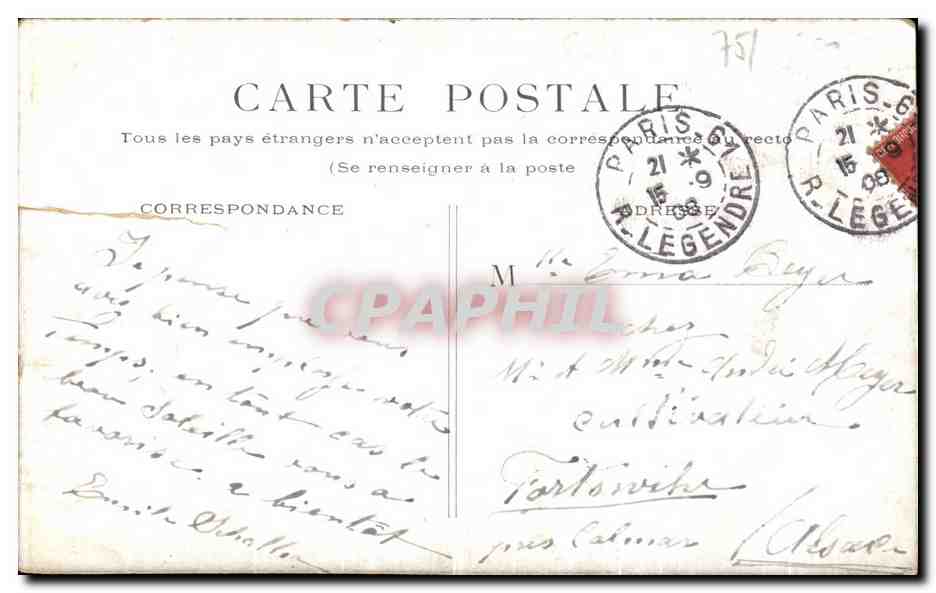 75
CARTE POSTALE
Tous les pays étrangers n'acceptent pas la correspondance au recto
(Se renseigner à la poste
CORRESPONDANCE
ADRESSE
PARIS_61
21 *
15 9
08
R_LEGENDRE
PARIS_61
21 *
15 9
08
R_LEGENDRE
Je pense que vous
avez bien employé votre
temps, en tout cas le
beau Soleille vous a
favorisé. a bientôt
Emile Schaller
M lle Emma Beyer
chez
Mr & Mme André Meyer
cultivateur
Fortswihr
près Colmar (Alsace
CPAPHIL